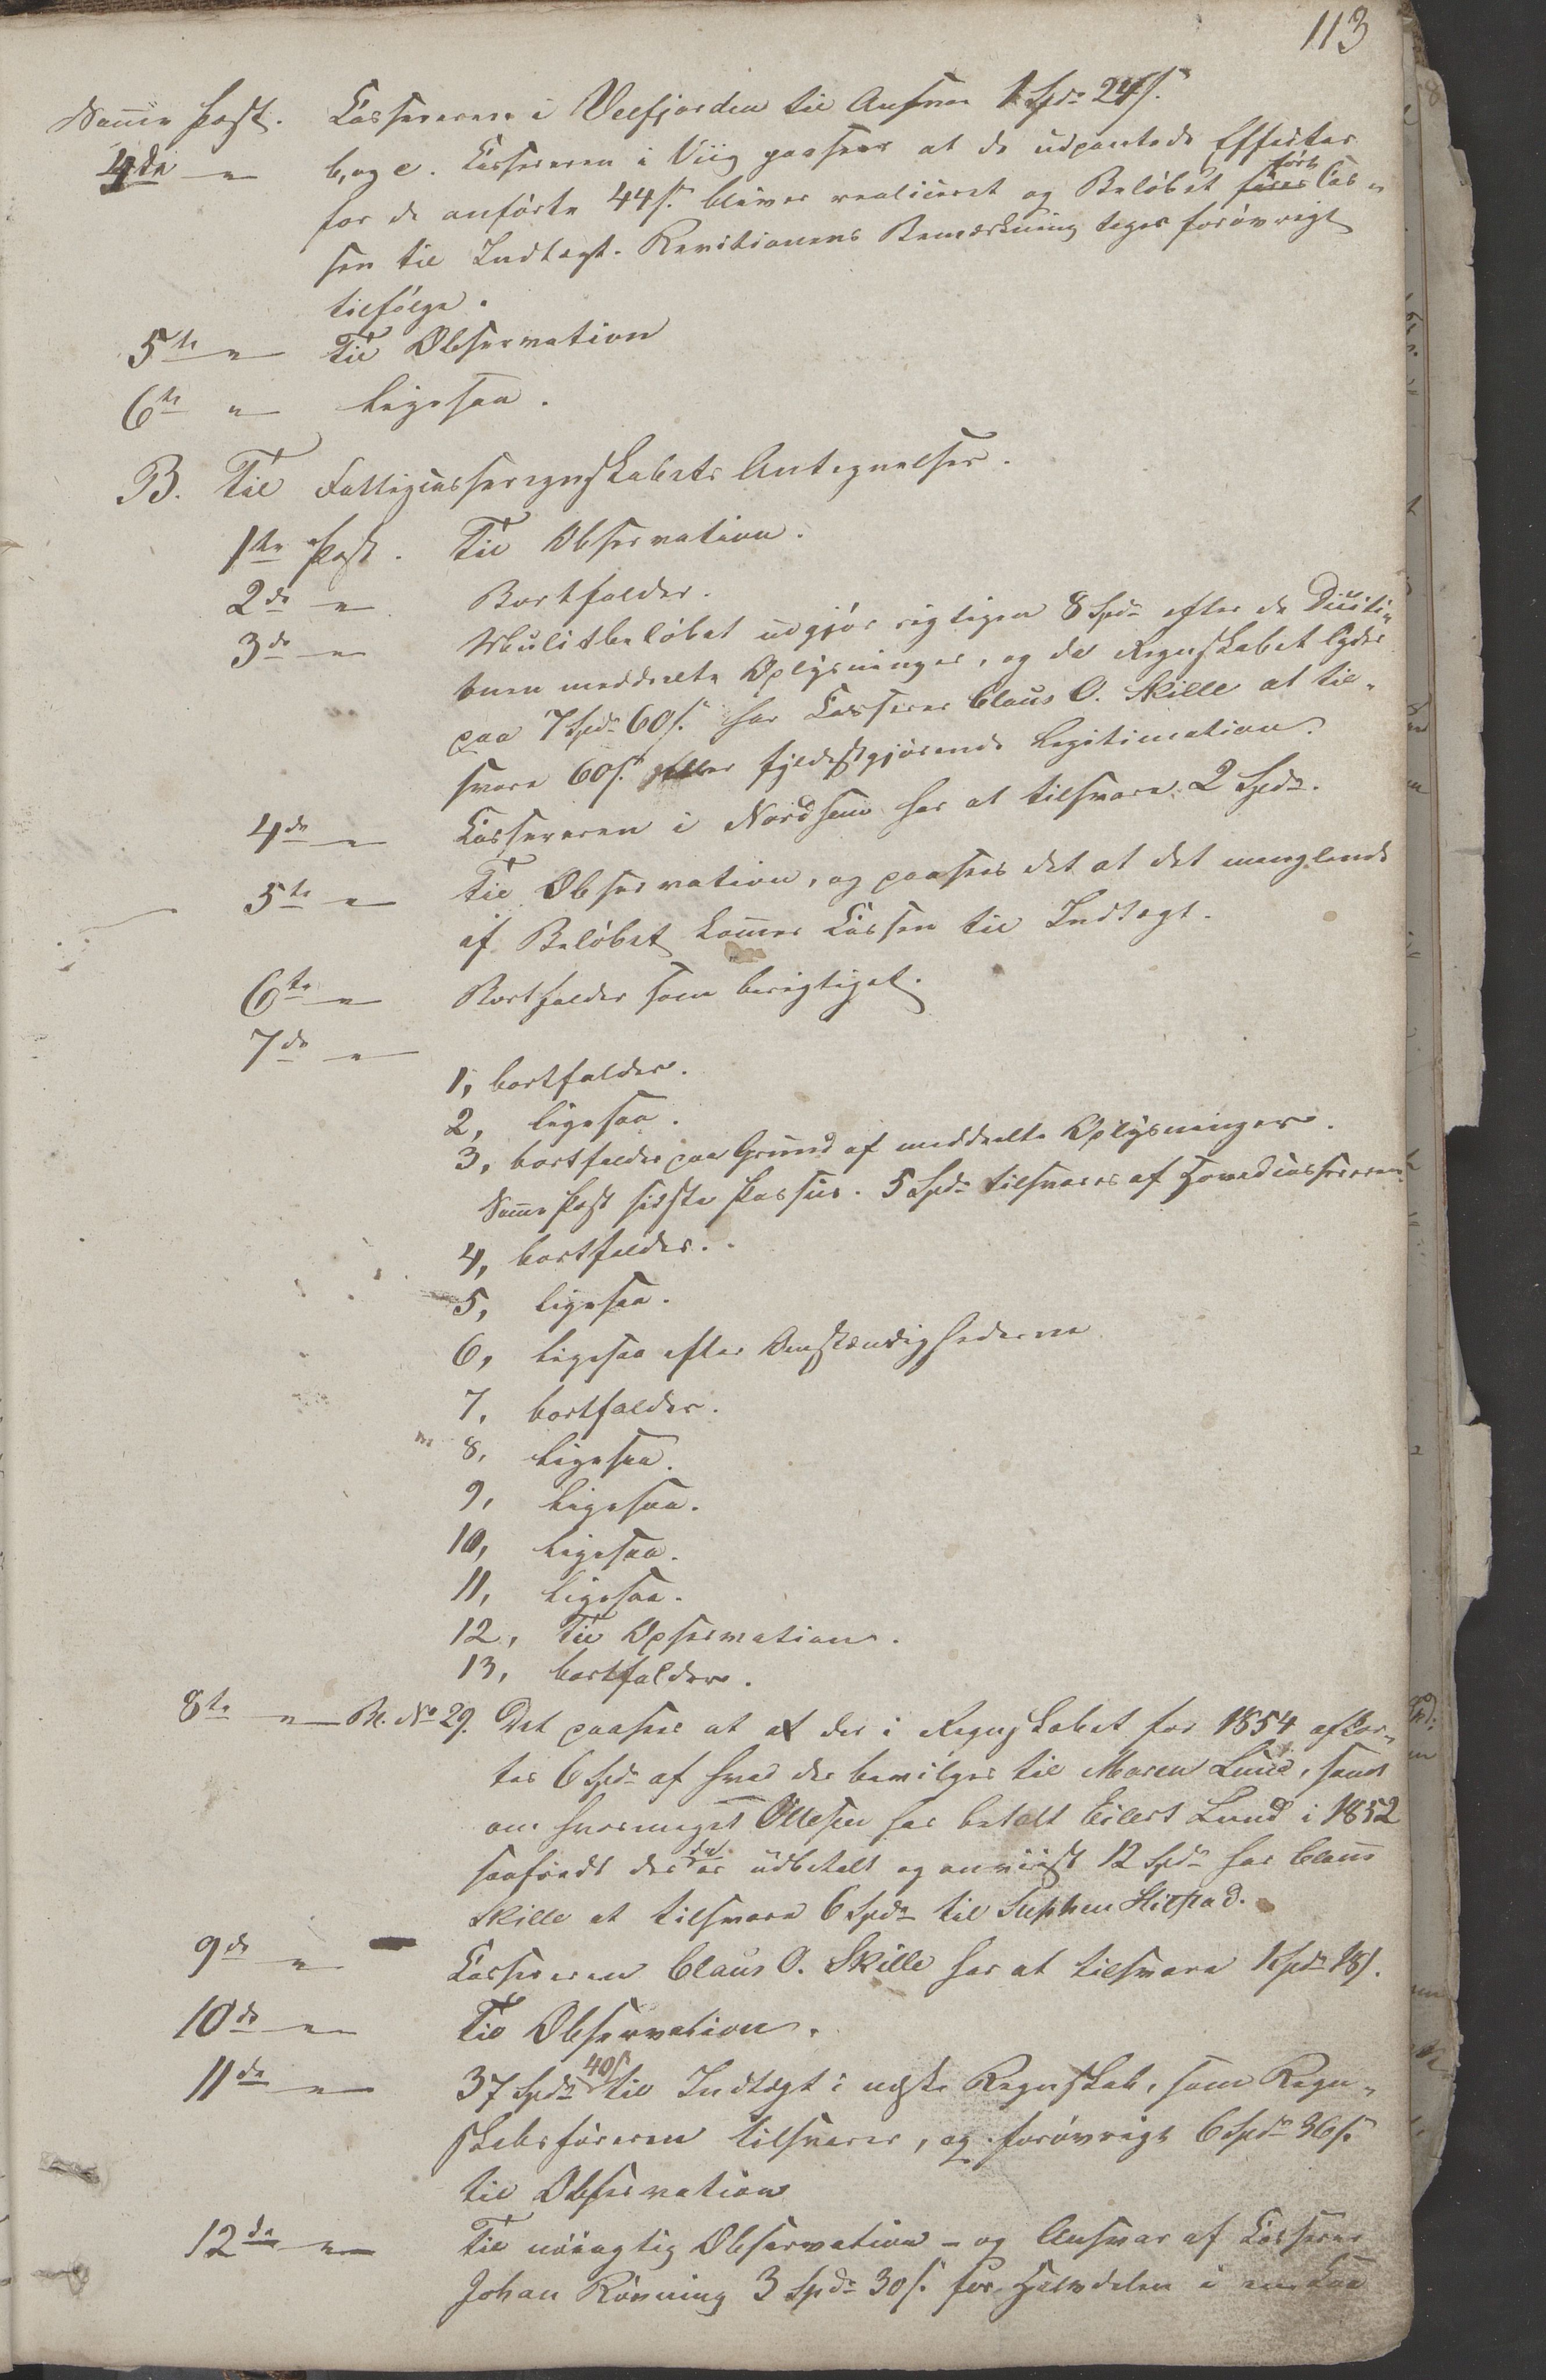 113
Samme Post. Cassereren i Velfjorden til Ansvar 1 Spd 24 s.
4de — " b, og c. Cassereren i Viig paasees at de udpantede Effecter
for de anførte 44 s. bliver realiceret og Beløbetført Cas-
sen til Indtægt. Revisionens Bemærkning tages forøvrigt
tilfølge.
5te — " Til Observation
6te " Ligesaa.
B. Til Fattigcasseregnskabets Antegnelser.
1te Post. Til Observation.
2de — " Bortfalder.
3de — " Mulctbeløbet udgjør rigtigen 8 Spd efter de
meddeelte Oplysninger, og da Regnskabet lyder
paa 7 Spd 60 s. har Casserer Claus O. Skille at til-
svare 60 s. eller fyldestgjørende Legitimation.
4de — " Cassereren i Nordhuus har at tilsvare 2 Spd.
5te — " Til Observation, og paasees det at det manglende
af Beløbet kommer Cassen til Indtægt.
6te — " Bortfalder som berigtiget.
7de — "
1, bortfalder.
2, ligesaa.
3, bortfalder paa Grund af meddeelte Oplysninger.
Samme Post sidste Passus. 5 Spd tilsvares af Hovedcassereren.
4, bortfalder.
5, ligesaa.
6, ligesaa efter Omstændighederne
7, bortfalder.
8, Ligesaa.
9, Ligesaa.
10, ligesaa.
11, ligesaa.
12, Til Opservation.
13, bortfalder.
8te — " Bl. No 29. Det paasees at at der i Regnskabet for 1854 afkor-
tes 6 Spd af hvad der bevilges til Maren Lund, samt
om hvormeget Ollesen har betalt Eilert Lund i 1852
saafremt der da er udbetalt og anviist 12 Spd har Claus
Skille at tilsvare 6 Spd til Stephen Stilstad.
9de — " Cassereren Claus O. Skille har at tilsvare 1 Spd 18 s.
10de — " Til Observation.
11de — " 37 Spd 40 s til Indtægt i næste Regnskab, som Regn-
skabsføreren tilsvarer, og forøvrigt 6 Spd 36 s.
til Observation
12te — " Til nøiagtig Observation – og Ansvar af Casserer
Johan Rønning 3 Spd 30 s. for Halvdelen i en Koe